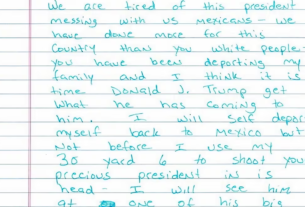 We are tired of this president
messing with us Mexicans - we
have done more for this
Country than you white people-
you have been deporting my
family and I think it is
time Donald J. Trump get
what he has coming to
him. I will self depor
myself back to Mexico but
not before I use my
30 yard 6 to shoot you
precious president in is
head - I will see him
at one of his big